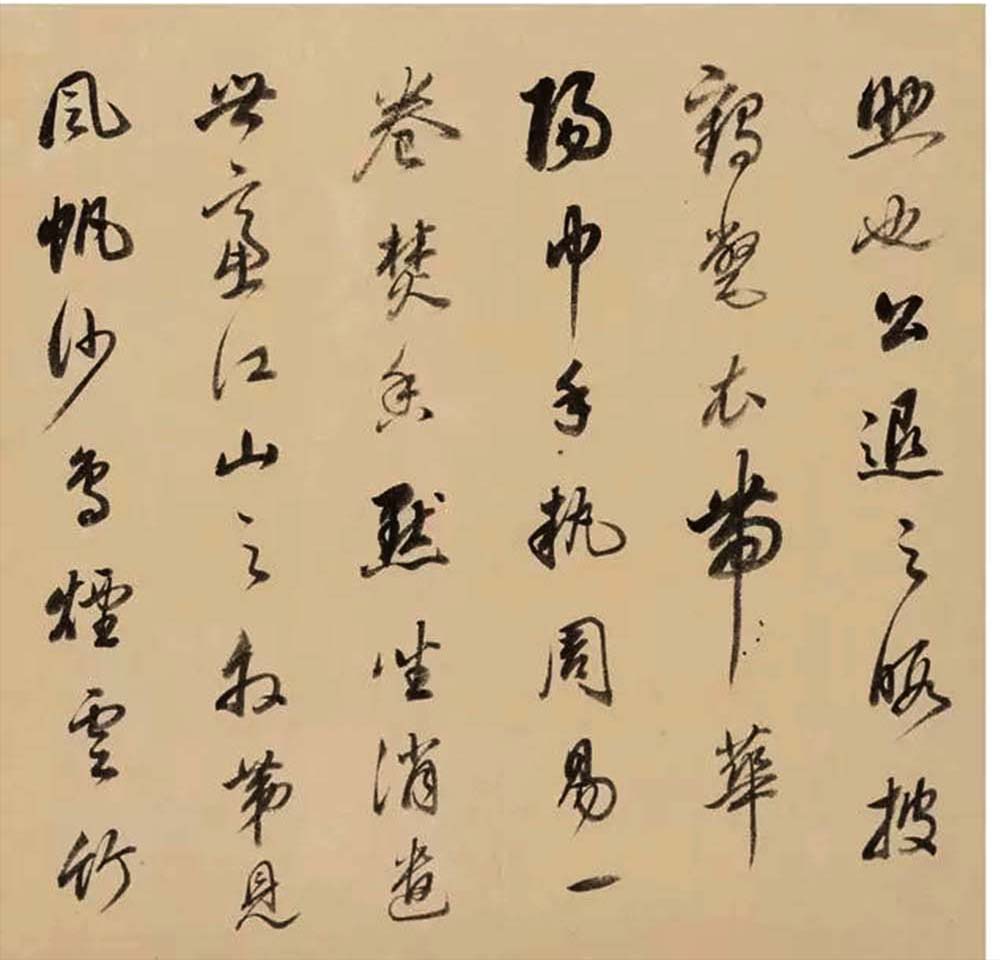 助也公退之暇披
鶴氅衣帶華
陽巾手執周易一
卷焚香默坐消遣
世慮江山之外第見
風帆沙鳥煙雲竹